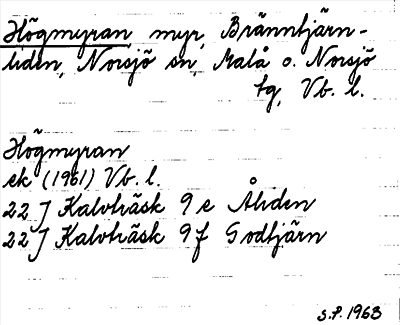 Högmyran myr, Bränntjärn-
liden, Norsjö sn, Malå o. Norsjö
tg, Vb. l.
Högmyran
ek (1961) Vb. l.
22 J Kalvträsk 9 e Åliden
22 J Kalvträsk 9 f Godtjärn
S.P. 1963